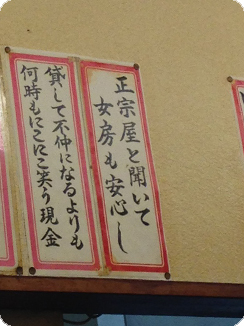 正宗屋と聞いて
女房も安心し
貸して不仲になるよりも
何時もにこにこ笑う現金